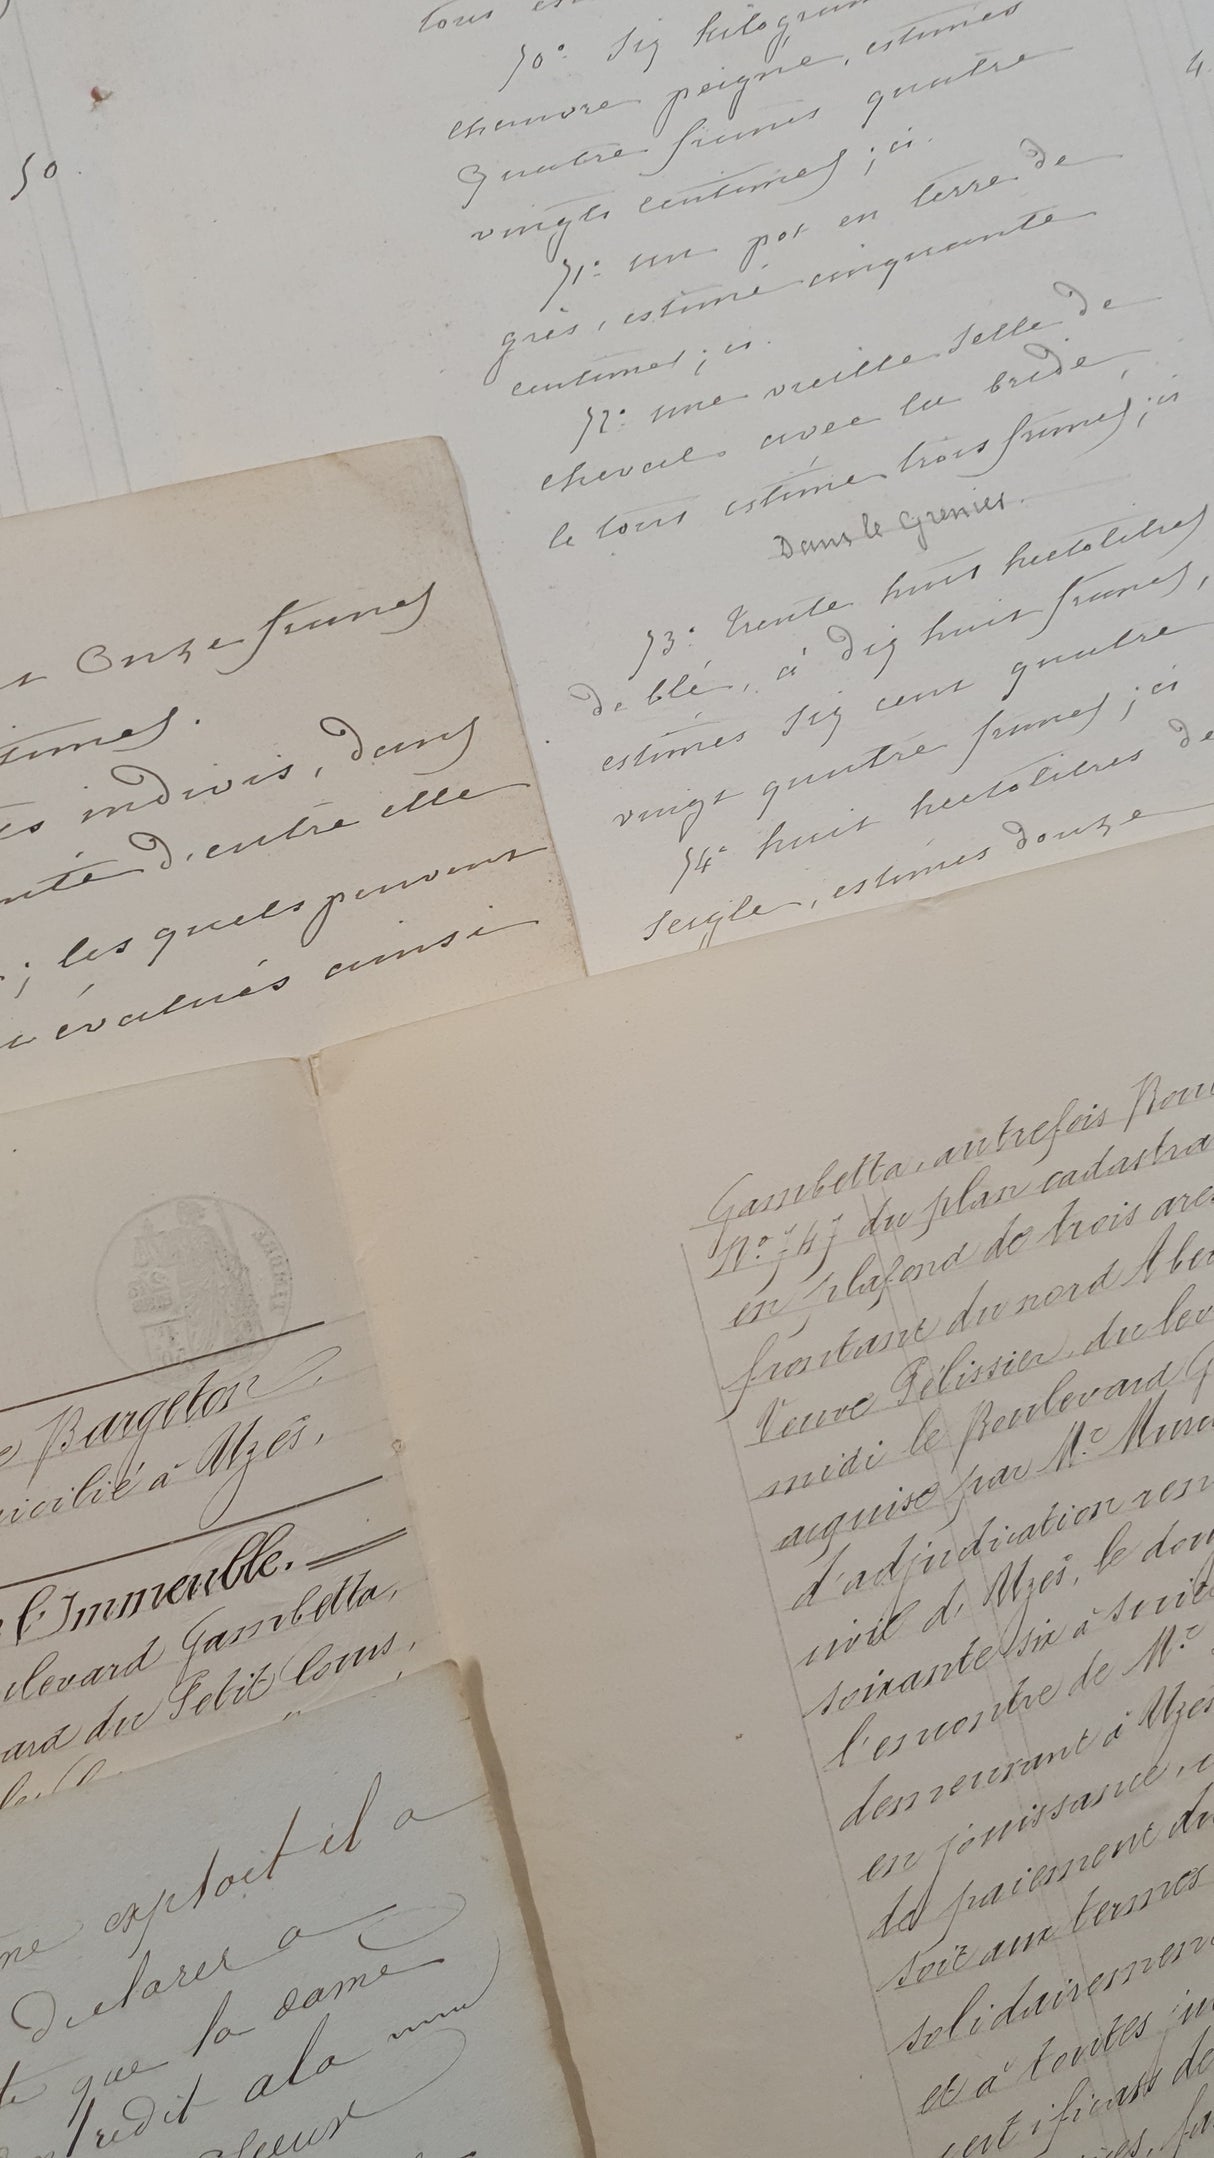 50.
tous
50° Six kilogram
chanvre peigné, estimés
quatre francs quatre
vingts centimes; ci.
4.
51° un pot en terre de
grès, estimé cinquante
centimes; ci.
52° une vieille selle de
cheval avec la bride,
le tout estimé trois francs; ci
Dans le Grenier.
53° Trente huit hectolitres
de blé, à dix huit francs,
estimés six cent quatre
vingt quatre francs; ci
54° huit hectolitres de
seigle, estimés douze
Onze francs
times.
indivis, dans
d'entre elle
; les quels peuvent
évalués ainsi
Bargeton,
icilié à Uzès,
l'Immeuble.
ulevard Gambetta,
ard du Petit Cours,
exploit il a
déclarer a
que la dame
redit a la
Gambetta, autrefois Bou
N° 747 du plan cadastra
en plafond de trois are
frontant du nord
Veuve Pélissier, du lev
midi le Boulevard G
acquise par Me
d'adjudication ren
civil d'Uzès, le dou
soixante six à suite
l'encontre de Me
demeurant à Uzès
en jouissance,
de paiement du
soit aux termes
solidairement
et à toutes
certificats de